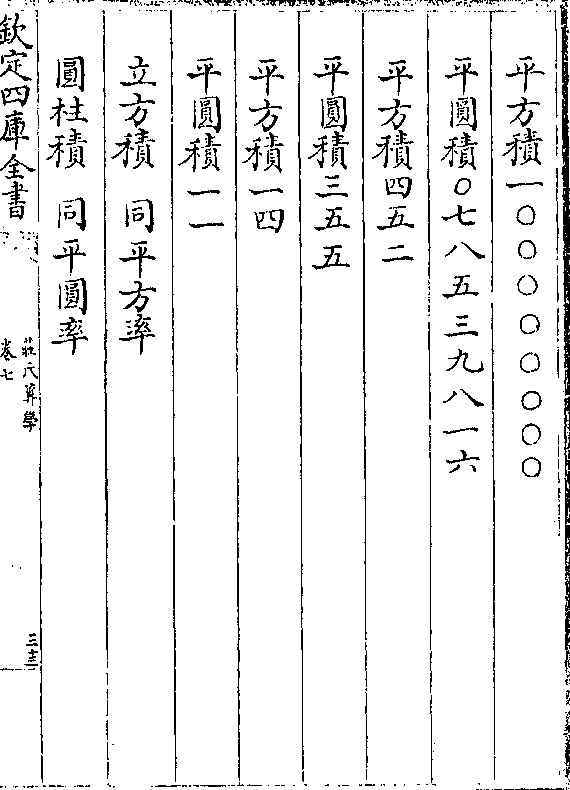 平方積一〇〇〇〇〇〇〇〇
平圓積〇七八五三九八一六
平方積四五二
平圓積三五五
平方積一四
平圓積一一
立方積 同平方率
圓柱積 同平圓率
欽定四庫全書
莊氏算學
卷七
三十三